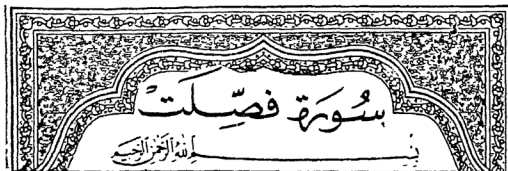 سُورَة فُصِّلَتْ
بِسْمِ اللَّهِ الرَّحْمَنِ الرَّحِيمِ